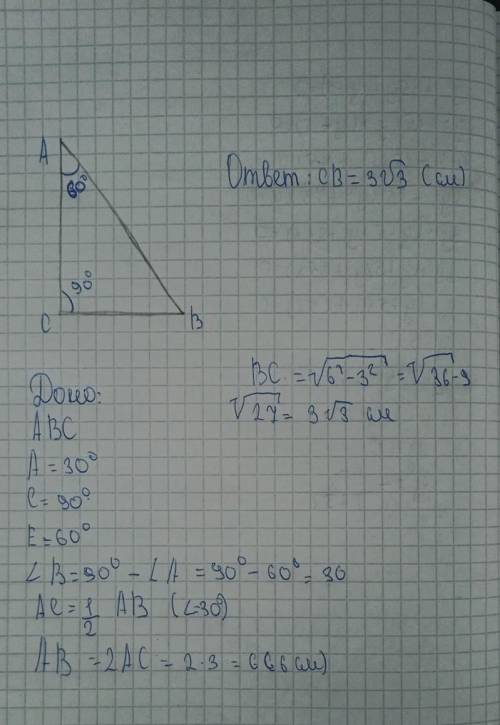 A
60°
90°
C
B
Ответ: CB = 3√3 (см)
BC = √6² - 3² = √36 - 9
√27 = 3√3 см
Дано:
ABC
A = 30°
C = 90°
E = 60°
∠B = 90° - ∠A = 90° - 60° = 30
AC = 1/2 AB (∠30°)
AB = 2AC = 2·3 = 6 см)